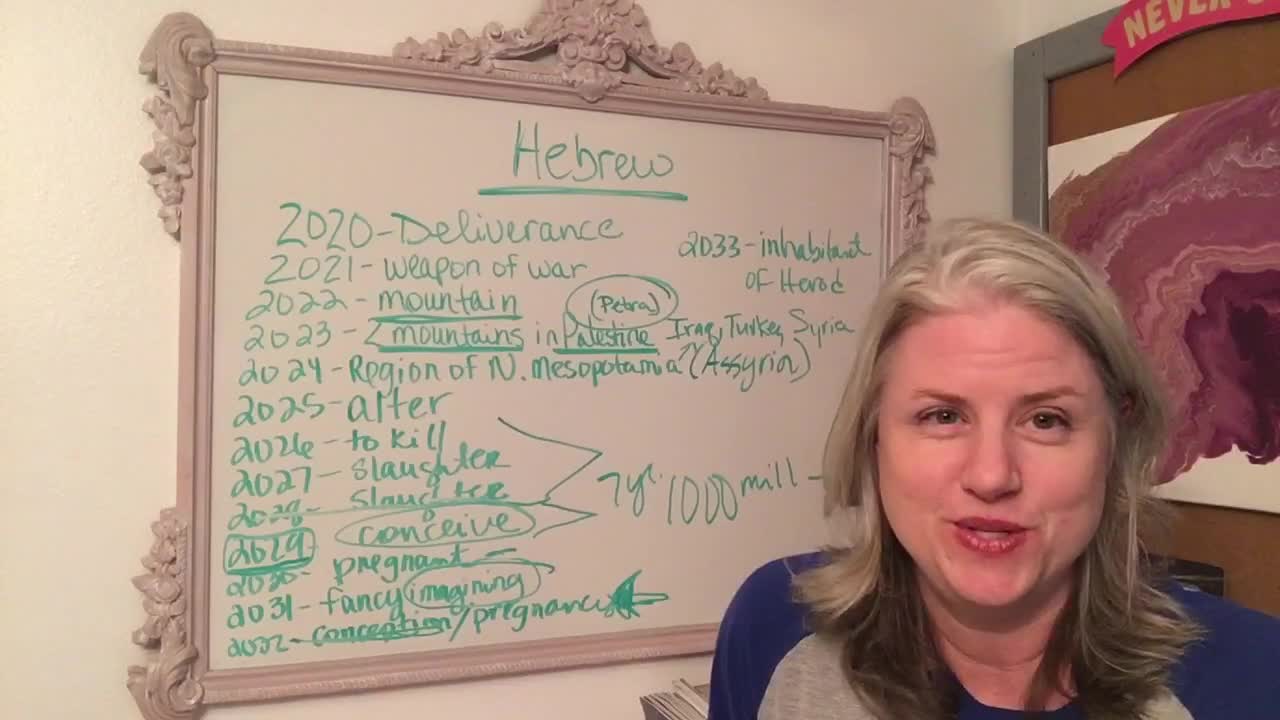 NEVER
Hebrew
2020-Deliverance
2021-weapon of war
2022-mountain
(Petra)
2023-2 mountains in Palestine Iraq, Turkey, Syria
2024-Region of N. Mesopotamia? (Assyria)
2025-alter
2026-to kill
2027-slaughter
2028-slaughter
2029 conceive
2030-pregnant-
2031-fancy imagining
2032-conception/pregnancy
2033-inhabitant
of Herod
7yr. 1000 mill-